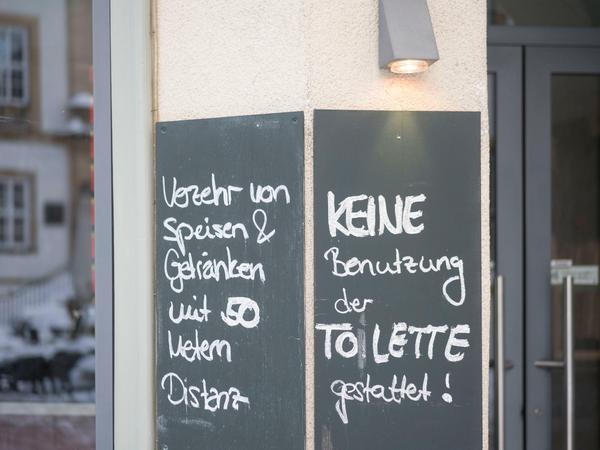 Verzehr von
Speisen &
Getränken
mit 50
Metern
Distanz
KEINE
Benutzung
der
TOILETTE
gestattet!